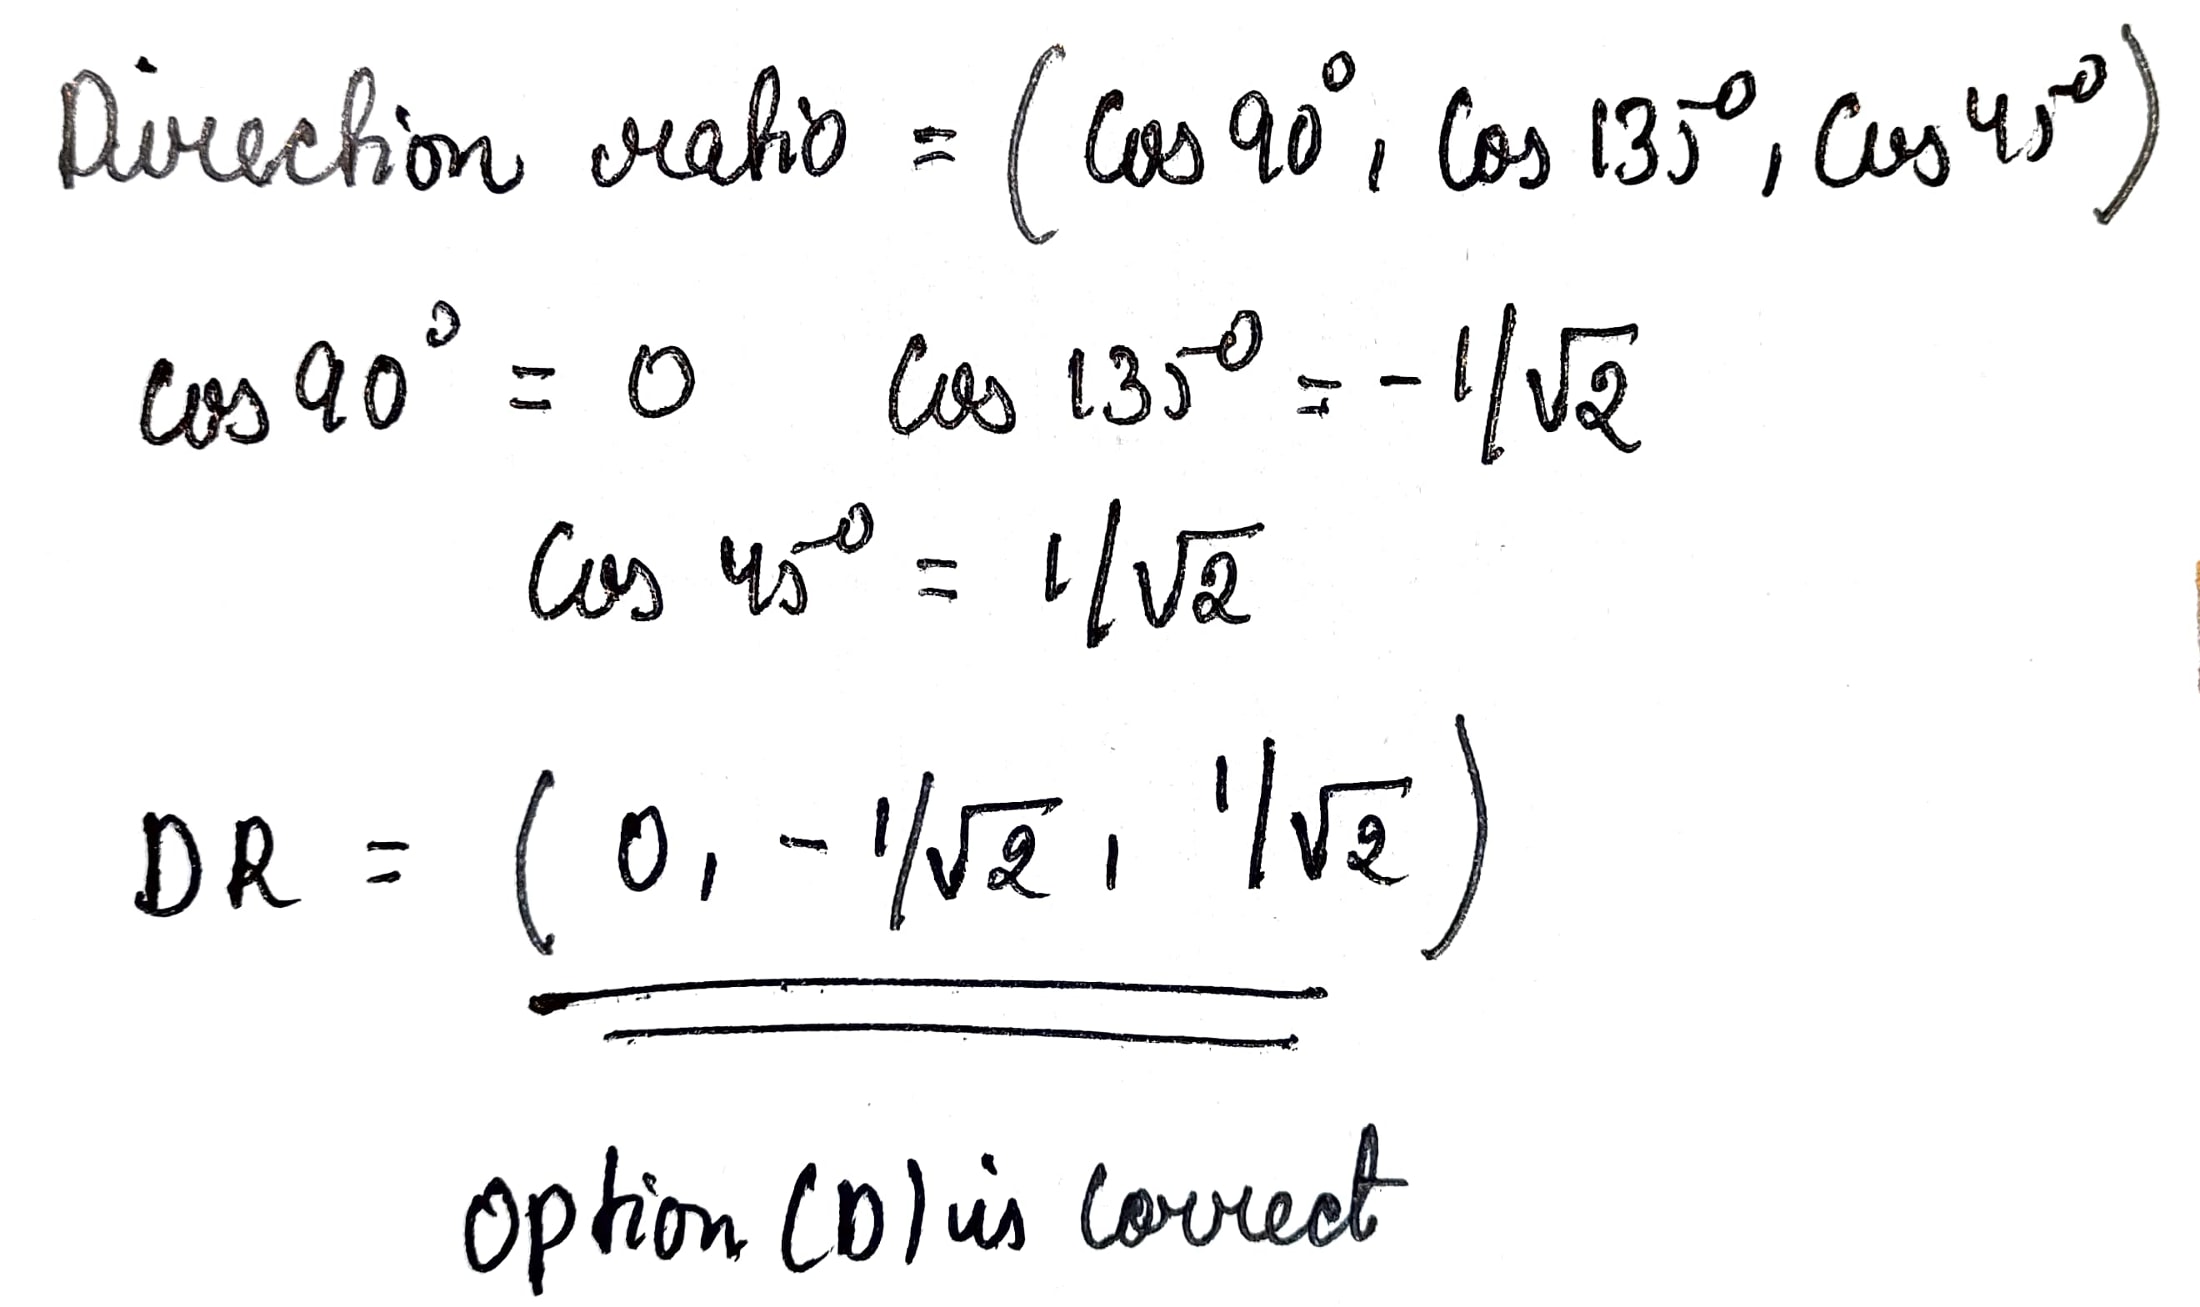 Direction ratio = ( Cos 90°, Cos 135°, Cos 45° )
cos 90° = 0 Cos 135° = - 1/√2
Cos 45° = 1/√2
DR = ( 0, - 1/√2, 1/√2 )
Option (D) is Correct